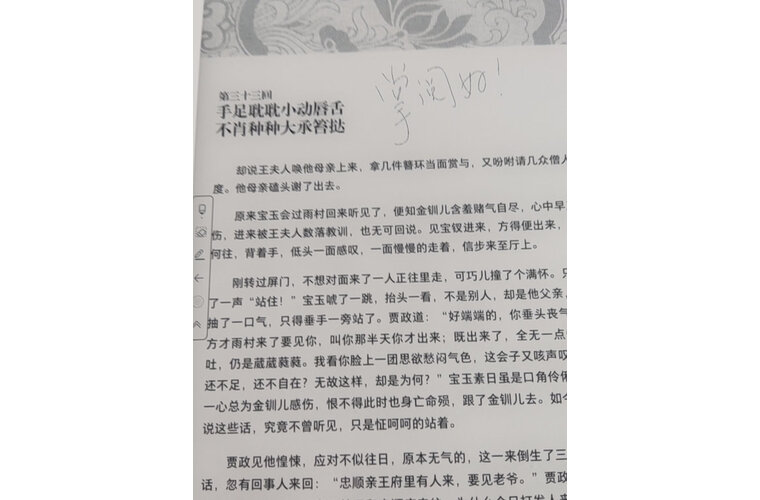 掌阅好！
第三十三回
手足耽耽小动唇舌
不肖种种大承笞挞
却说王夫人唤他母亲上来，拿几件簪环当面赏与，又吩咐请几众僧人
度。他母亲磕头谢了出去。
原来宝玉会过雨村回来听见了，便知金钏儿含羞赌气自尽，心中早
伤，进来被王夫人数落教训，也无可回说。见宝钗进来，方得便出来，
何往，背着手，低头一面感叹，一面慢慢的走着，信步来至厅上。
刚转过屏门，不想对面来了一人正往里走，可巧儿撞了个满怀。只
了一声“站住！”宝玉唬了一跳，抬头一看，不是别人，却是他父亲，
抽了一口气，只得垂手一旁站了。贾政道：“好端端的，你垂头丧气
方才雨村来了要见你，叫你那半天你才出来；既出来了，全无一点
吐，仍是葳葳蕤蕤。我看你脸上一团思欲愁闷气色，这会子又咳声叹
还不足，还不自在？无故这样，却是为何？”宝玉素日虽是口角伶俐
一心总为金钏儿感伤，恨不得此时也身亡命殒，跟了金钏儿去。如今
说这些话，究竟不曾听见，只是怔呵呵的站着。
贾政见他惶悚，应对不似往日，原本无气的，这一来倒生了三
话，忽有回事人来回：“忠顺亲王府里有人来，要见老爷。”贾政